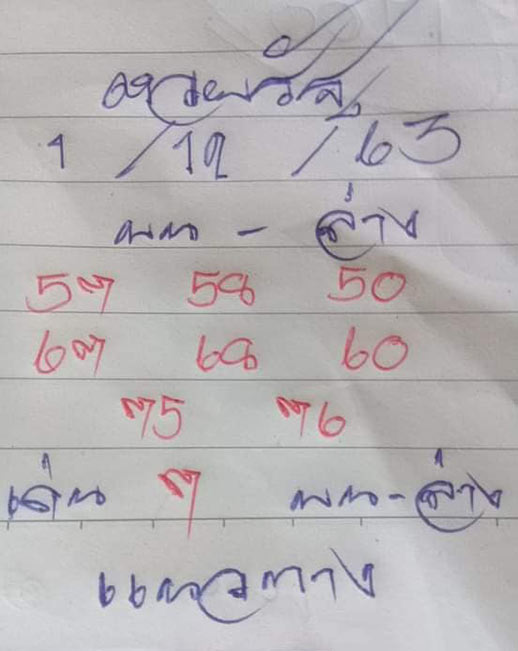 1 / 12 / 63
บน - ล่าง
57 58 50
67 68 60
75 76
เด่น 7 บน-ล่าง
แนวทาง